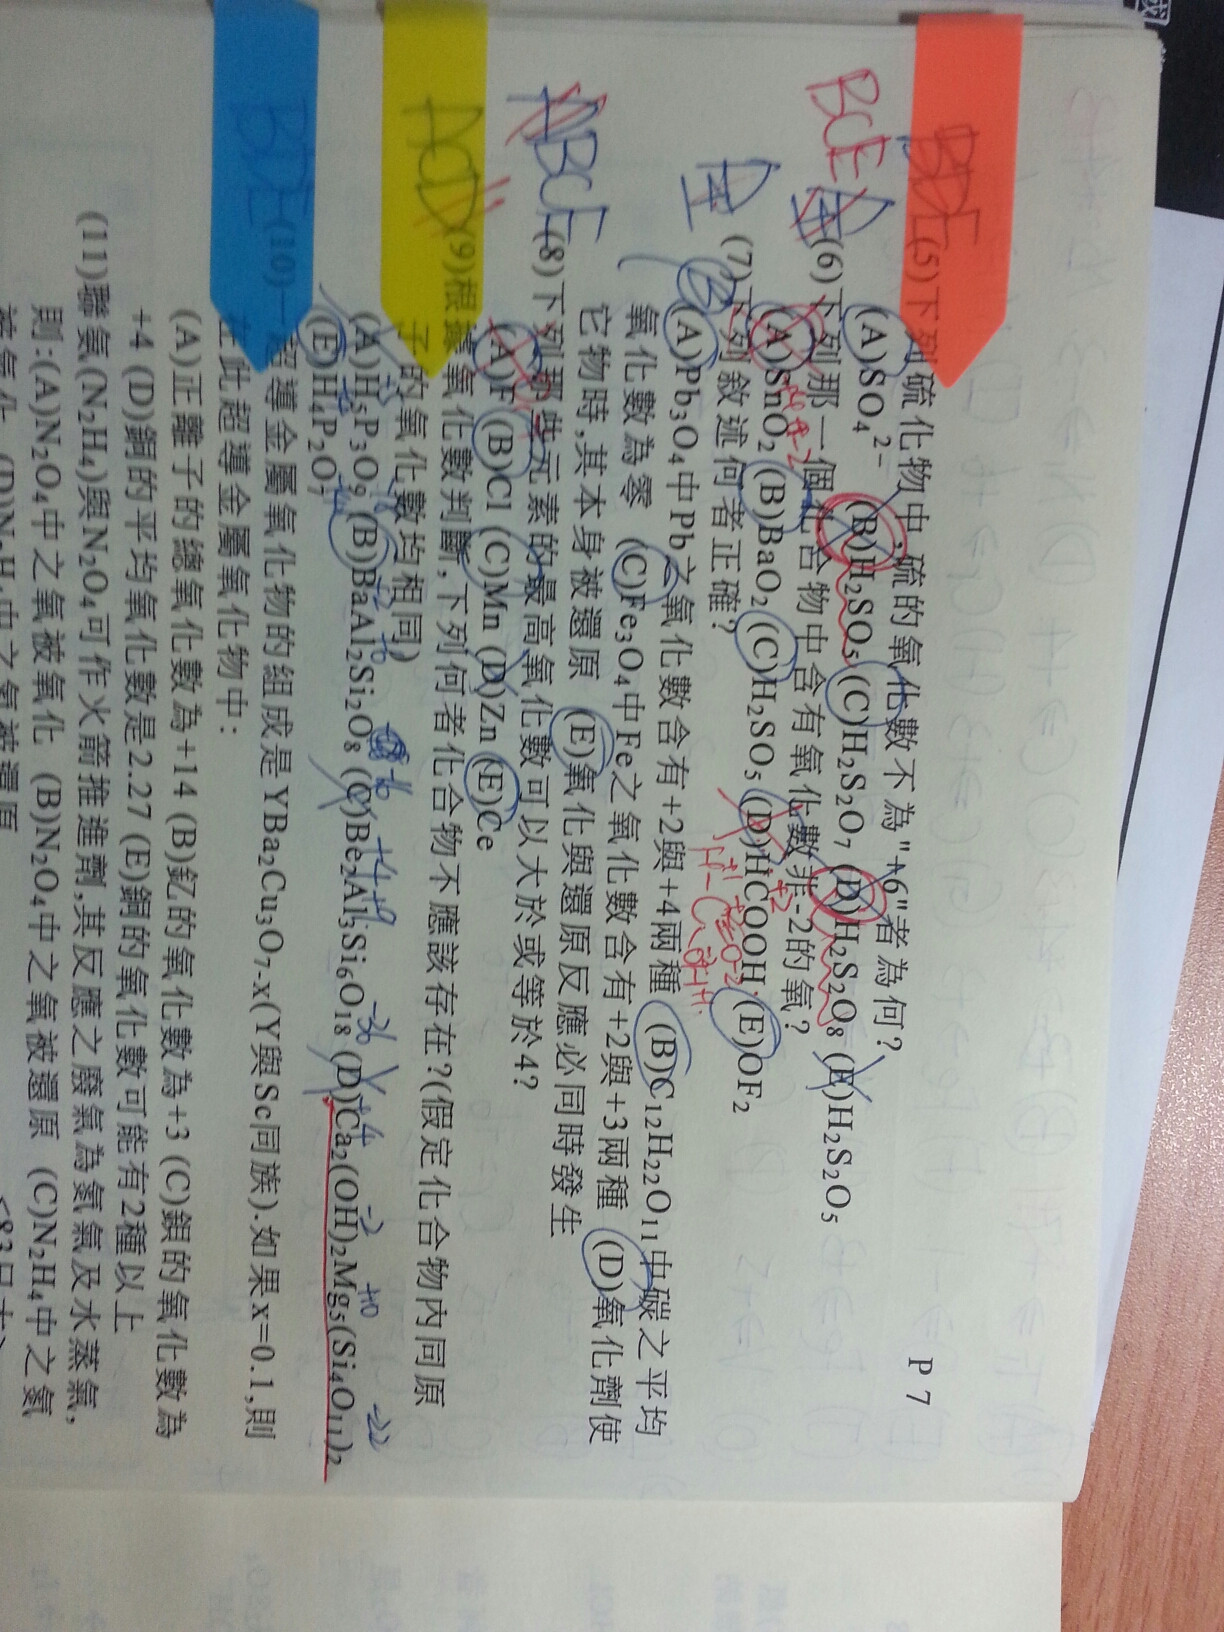 P 7
BDE (5)下列硫化物中硫的氧化數不為"+6"者為何?
(A)SO₄²⁻ (B)H₂SO₅ (C)H₂S₂O₇ (D)H₂S₂O₈ (E)H₂S₂O₅
BCE (6)下列那一個化合物中含有氧化數非-2的氧?
(A)SnO₂ (B)BaO₂ (C)H₂SO₅ (D)HCOOH (E)OF₂
(7)下列敘述何者正確?
(A)Pb₃O₄中Pb之氧化數含有+2與+4兩種 (B)C₁₂H₂₂O₁₁中碳之平均
氧化數為零 (C)Fe₃O₄中Fe之氧化數含有+2與+3兩種 (D)氧化劑使
它物時,其本身被還原 (E)氧化與還原反應必同時發生
ABCE (8)下列那些元素的最高氧化數可以大於或等於4?
(A)F (B)Cl (C)Mn (D)Zn (E)Ce
ACD (9)根據氧化數判斷,下列何者化合物不應該存在?(假定化合物內同原
子的氧化數均相同)
(A)H₅P₃O₉ (B)BaAl₂Si₂O₈ (C)Be₂Al₃Si₆O₁₈ (D)Ca₂(OH)₂Mg₅(Si₄O₁₁)₂
+4 +9 -36 +4 -2 +10 -22
(E)H₄P₂O₇
BDE (10)一超導金屬氧化物的組成是YBa₂Cu₃O₇₋ₓ(Y與Sc同族).如果x=0.1,則
在此超導金屬氧化物中:
(A)正離子的總氧化數為+14 (B)釔的氧化數為+3 (C)鋇的氧化數為
+4 (D)銅的平均氧化數是2.27 (E)銅的氧化數可能有2種以上
(11)聯氨(N₂H₄)與N₂O₄可作火箭推進劑,其反應之廢氣為氮氣及水蒸氣,
則:(A)N₂O₄中之氧被氧化 (B)N₂O₄中之氧被還原 (C)N₂H₄中之氮
被氧化 (D)N₂H₄中之氮被還原